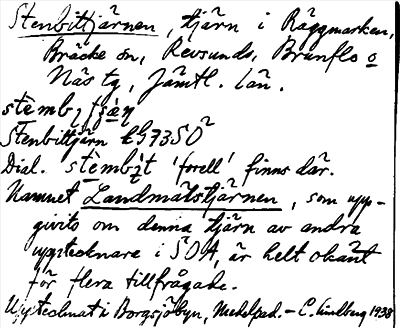 Stenbittjärnen, tjärn i Räggmarken,
Bräcke sn, Revsunds, Brunflo o
Näs tg, Jämtl. län.
stèmbı̣tjæ̀ṇ
Stenbittjärn EG73SO²
Dial. stèmbı̣t 'forell' finns där.
Namnet Landmätstjärnen, som upp-
givits om denna tjärn av andra
upptecknare i SOA, är helt okänt
för flera tillfrågade.
Upptecknat i Borgsjöbyn, Medelpad. – C. Lindberg 1938